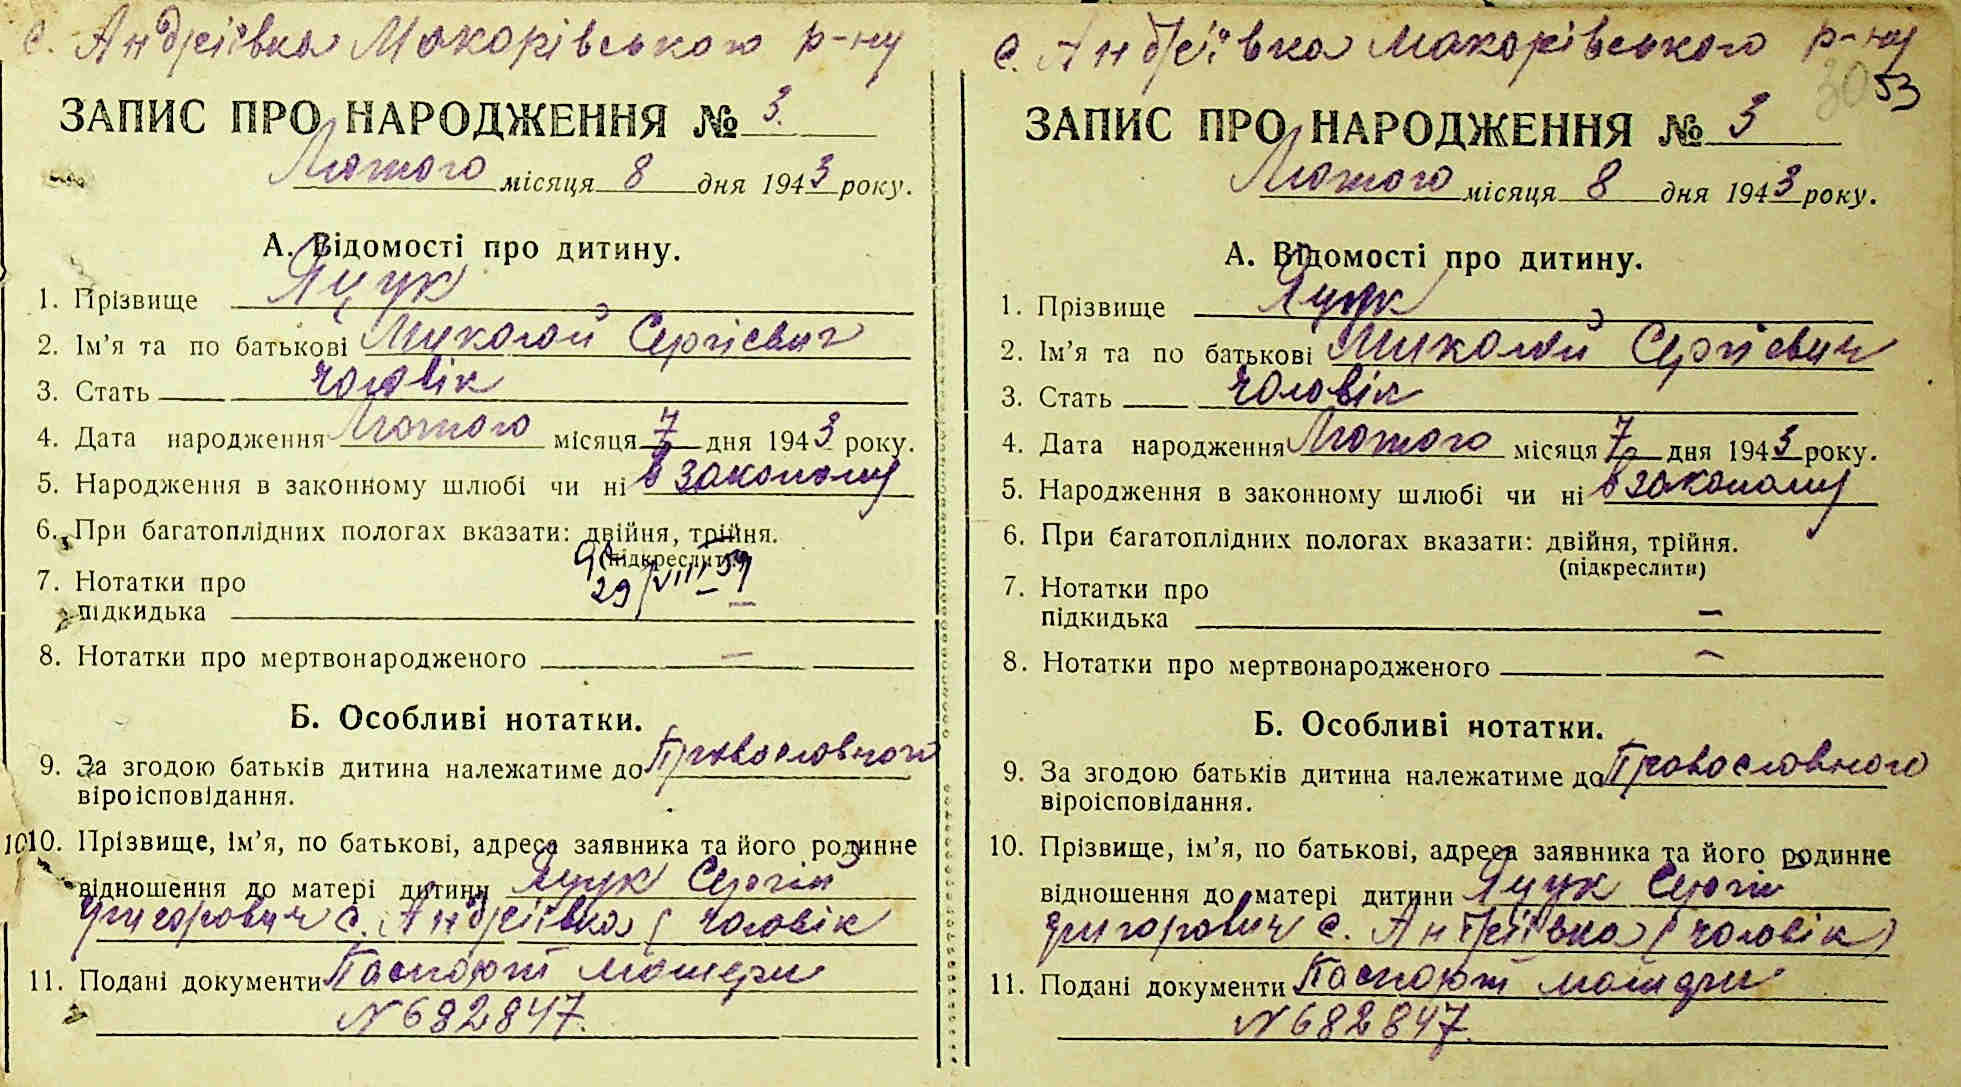 с. Андріївка Макарівського р-ну
ЗАПИС ПРО НАРОДЖЕННЯ № 3.
Лютого місяця 8 дня 1943 року.
А. Відомості про дитину.
1. Прізвище Яцук
2. Ім'я та по батькові Миколай Сергієвич
3. Стать чоловік
4. Дата народження Лютого місяця 7 дня 1943 року.
5. Народження в законному шлюбі чи ні в законому
6. При багатоплідних пологах вказати: двійня, трійня.
(підкреслити)
7. Нотатки про
29/VIII 59
підкидька —
8. Нотатки про мертвонародженого —
Б. Особливі нотатки.
9. За згодою батьків дитина належатиме до Православного
віроісповідання.
10. Прізвище, ім'я, по батькові, адреса заявника та його родинне
відношення до матері дитини Яцук Сергій
Григорович с. Андріївка (чоловік
11. Подані документи Паспорт матери
N 682847.
с. Андріївка Макарівського р-ну
30 53
ЗАПИС ПРО НАРОДЖЕННЯ № 3
Лютого місяця 8 дня 1943 року.
А. Відомості про дитину.
1. Прізвище Яцук
2. Ім'я та по батькові Миколай Сергієвич
3. Стать чоловік
4. Дата народження Лютого місяця 7 дня 1943 року.
5. Народження в законному шлюбі чи ні в законому
6. При багатоплідних пологах вказати: двійня, трійня.
(підкреслити)
7. Нотатки про
підкидька —
8. Нотатки про мертвонародженого —
Б. Особливі нотатки.
9. За згодою батьків дитина належатиме до Православного
віроісповідання.
10. Прізвище, ім'я, по батькові, адреса заявника та його родинне
відношення до матері дитини Яцук Сергій
Григорович с. Андріївка (чоловік)
11. Подані документи Паспорт матери
N 682847.